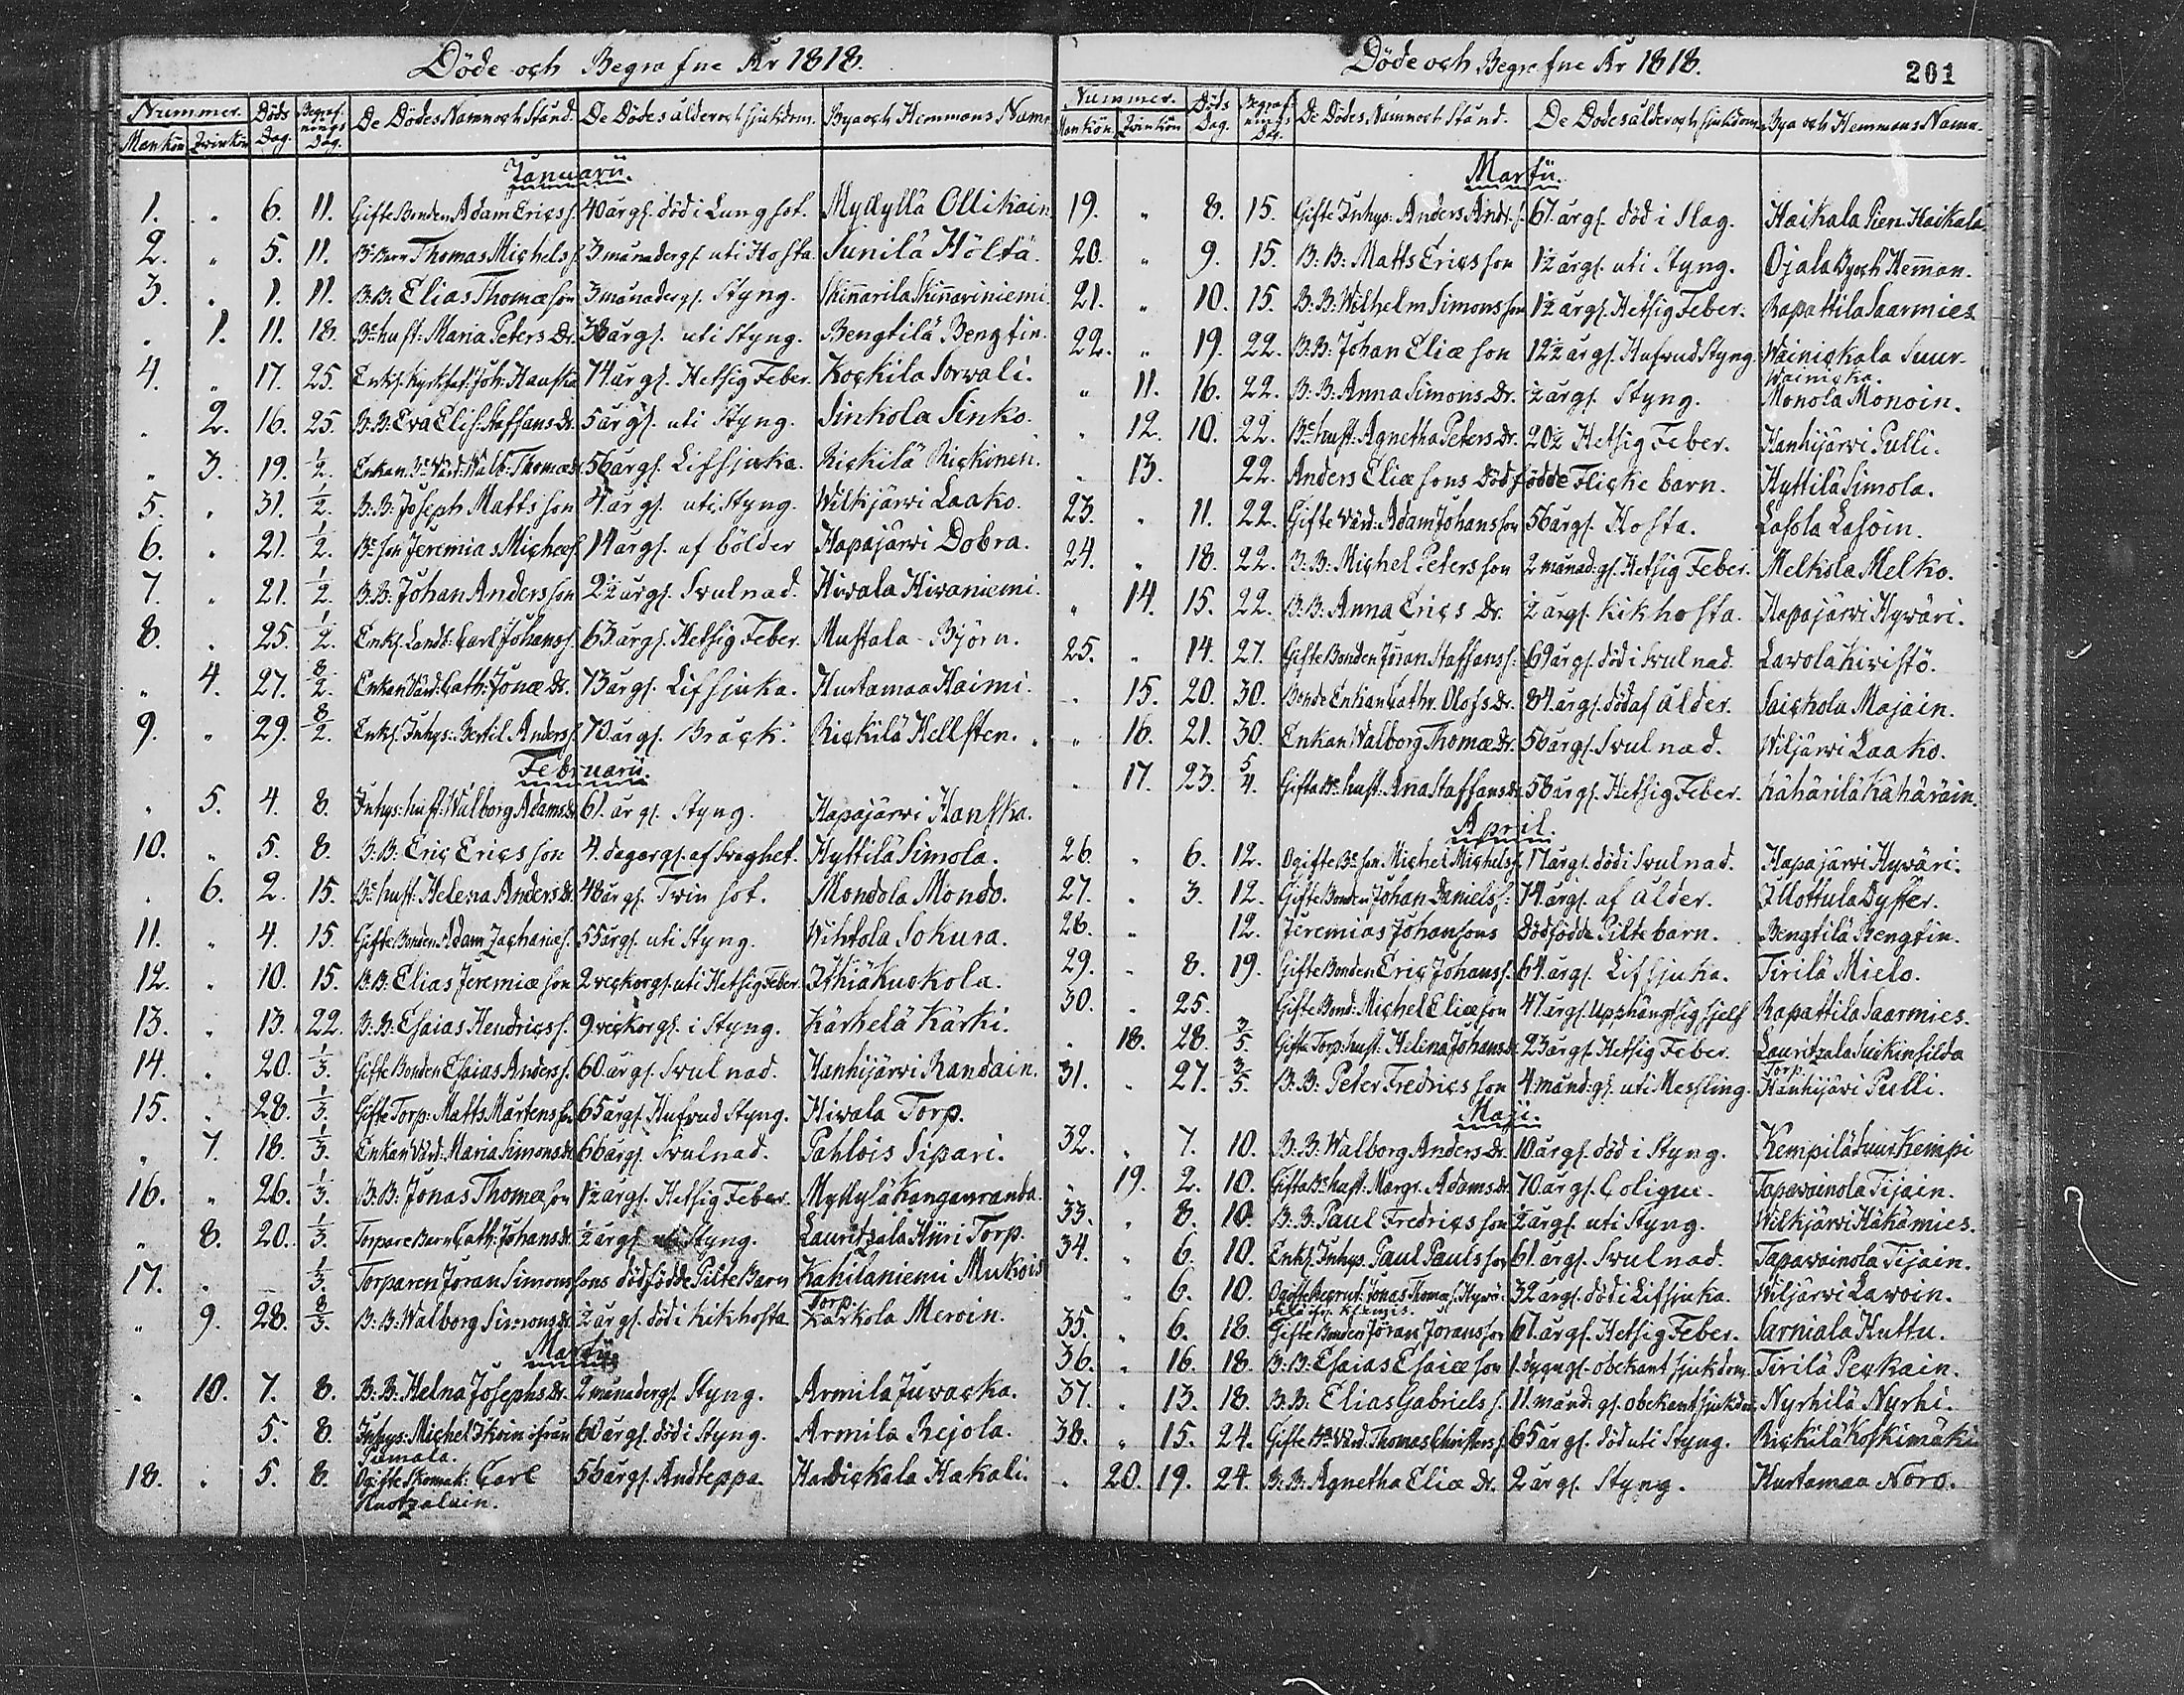 Döde och Begrafne År 1818.
Nummer. Döds Dag. Begrafnings Dag. De Dödes Namn och Stånd. De Dödes ålder och sjukdom. Bya och Hemmans Namn
Mankön Qvinkön
Januarii.
1. " 6. 11. Gifte Bonden Adam Erics s. 40 årgs. död i Lungsot. Myllylä Ollikain.
2. " 5. 11. Bd. Barn Thomas Michels s. 3 månadergs. uti Hosta. Sunilä Höltä.
3. " 1. 11. B: B: Elias Thomæ son 3 månadergs. Styng. Skinnarila Skinnariniemi.
" 1. 11. 18. Bde hust: Maria Peters Dr. 38 årgs. uti Styng. Bengtilä Bengtin.
4. " 17. 25. Enkl. Joh: Hauska 74 årgs. Hetsig Feber. Kockila Sorvali.
" 2. 16. 25. B: B: Eva Elis: Staffans Dr. 5 årgs. uti Styng. Sinkola Sinko.
" 3. 19. 1/2. Enkan Walb: Thomæ dr 56 årgs. Lifsjuka. Rickilä Rickinen.
5. " 31. 1/2. B: B: Joseph Matts son 4. årgs. uti Styng. Wilkjärwi Laako.
6. " 21. 1/2. Bde son Jeremias Michels. 14 årgs. af bölder Hapajärwi Dobra.
7. " 21. 1/2. B: B: Johan Anders son 2½ årgs. Svulnad. Hivala Hivaniemi.
8. " 25. 1/2. Enkl. Landb: Carl Johans s. 63 årgs. Hetsig Feber. Mustala Björn.
" 4. 27. 8/2. Enkan Värd: Cath: Jonæ Dr. 73 årgs. Lifsjuka. Hurtamaa Haimi.
9. " 29. 8/2. Enkl. Inhys: Bertil Anders s. 70 årgs. Bråck. Rickilä Hellsten.
Februarii.
" 5. 4. 8. Inhys: hust: Walborg Adams dr 61. årgs. Styng. Hapajärwi Hanska.
10. " 5. 8. B: B: Eric Erics son 4. dagargs. af Svaghet. Hyttilä Simola.
" 6. 2. 15. Bde hust: Helena Anders dr. 48 årgs. Tvin sot. Mondola Mondo.
11. " 4. 15. Gifte Bonden Adam Zacharies s. 55 årgs. uti Styng. Wihtola Sokura.
12. " 10. 15. B: B: Elias Jeremiæ son 2 veckorgs. uti Hetsig Feber. Ithiä Kuokola.
13. " 13. 22. B: B: Esaias Hendrics s. 9. veckorgs. i Styng. Kärkelä Kärki.
14. " 20. 1/3. Gifte Bonden Esaias Anders s. 60 årgs. Svulnad. Hanhijärwi Randain.
15. " 28. 1/3. Gifte Torp: Matts Mårtens son 65 årgs. Hufvud Styng. Hivala Torp.
" 7. 18. 1/3. Enkan Värd: Maria Simons dr 66 årgs. Svulnad. Pahlois Sipari.
16. " 26. 1/3. B: B: Jonas Thomæ son 1½ årgs. Hetsig Feber. Myllylä Kanganranda.
" 8. 20. 1/3. Torpare Barn Cath: Johans dr. ½ årgs. uti Styng. Lauritzala Hiiri Torp.
17. " 1/3. Torparen Jöran Simons sons dödfödde Pilte Barn Kahilaniemi Mukois
Torp.
" 9. 28. 8/3. B: B: Walborg Simons dr ½ årgs. död i Kikhosta. Karkola Meroin.
Martii.
" 10. 7. 8. B: B: Helna Josephs Dr. 2 månadergs. Styng. Armila Juvacka.
5. 8. Inhys: Michel Ikoin ifrån 60 årgs. död i Styng. Armila Rejola.
Pumala.
18. " 5. 8. Ogifte Skomak: Carl 56 årgs. Andteppa. Hardickala Hakali.
Huotzalain.
Döde och Begrafne År 1818. 201
Nummer. Döds Dag. Begrafnings Dag. De Dödes Namn och Stånd. De Dödes ålder och sjukdom. Bya och Hemmans Namn.
Mankön Qvinkön
Martii.
19. " 8. 15. Gifte Inhys: Anders Andr. s. 67. årgs. död i Slag. Haikala Pien Haikala
20. " 9. 15. B: B: Matts Erics son 1½ årgs. uti Styng. Ojala By och Hemman.
21. " 10. 15. B: B: Wilhelm Simons son 1½ årgs. Hetsig Feber. Rapattila Saarmies
22. " 19. 22. B: B: Johan Eliæ son 12½ årgs. Hufvud Styng. Wainickala Suur-
Wainicka.
" 11. 16. 22. B: B: Anna Simons Dr. ½ årgs. Styng. Monola Monoin.
" 12. 10. 22. Bde hust: Agnetha Peters dr. 20½ Hetsig Feber. Hanhijärwi Pulli.
" 13. 22. Anders Eliæ sons Dödfödde Flicke barn. Hyttilä Simola.
23. " 11. 22. Gifte Värd: Adam Johans son 56 årgs. Hosta. Lasola Lasoin.
24. " 18. 22. B: B: Michel Peters son 2 månad: gs. Hetsig Feber. Melkola Melko.
" 14. 15. 22. B: B: Anna Erics Dr. ½ årgs. Kikhosta. Hapajärwi Hywäri.
25. " 14. 27. Gifte Bonden Jöran Staffans s. 69 årgs. död i Svulnad. Lavola Kiristö.
" 15. 20. 30. Bonde Enkan Cathr. Olofs Dr. 84. årgs. död af ålder. Saickola Majain.
" 16. 21. 30. Enkan Walborg Thomæ Dr. 56 årgs. Svulnad. Wiljärwi Laako.
" 17. 23. 5/4. Gifta Bde hust. Anna Staffans dr. 58 årgs. Hetsig Feber. Kähärilä Kähäräin.
April.
26. " 6. 12. Ogifte Bde son Michel Michels s. 17 årgs. död i Svulnad. Hapajärwi Hywäri.
27. " 3. 12. Gifte Bonden Johan Daniels s: 74. årgs. af ålder. Illottula Dyster.
28. " 12. Jeremias Johansons Dödfödde Pilte barn. Bengtilä Bengtin.
29. " 8. 19. Gifte Bonden Eric Johans s. 64. årgs. Lifsjuka. Tirilä Mielo.
30. " 25. " Gifte Bond: Michel Eliæ son 47. årgs. Upphängt sig sjelf Rapattila Saarmies.
" 18. 28. 3/5. Gifte Torp: hust: Helena Johans dr 23 årgs. Hetsig Feber. Lauritzala Suikinsilda
Torp.
31. " 27. 3/5. B: B: Peter Fredrics son 4. månd: gs. uti Messling. Hanhijärwi Pulli.
Maji.
32. " 7. 10. B: B: Walborg Anders Dr. 10 årgs. död i Styng. Kempilä Suur Kempi
" 19. 2. 10. Gifta Bde hust. Margr. Adams dr 70 årgs. Colique. Tapavainola Tijain.
33. " 8. 10. B: B: Paul Fredrics son ½ årgs. uti Styng. Wilkjärwi Häkämies.
34. " 6. 10. Enkl. Inhys. Paul Pauls son 61. årgs. Svulnad. Tapavainola Tijain.
" 6. 10. Ogifte Recrut: Jonas Thomæ s. 32 årgs. död i Lifsjuka. Wiljärwi Lawoin.
35. " 6. 18. Gifte Bonden Jöran Jörans son 67. årgs. Hetsig Feber. Sarniala Huttu.
36. " 16. 18. B: B: Esaias Esaiæ son 1. dygngs. obekant sjukdom Tirilä Peckain.
37. " 13. 18. B: B: Elias Gabriels s. 11. månd: gs. obekant sjukdom. Nyrhilä Nyrhi.
38. " 15. 24. Gifte Bde Värd: Thomas Christers s. 65 årgs. död uti Styng. Rickilä Koskimäki
" 20. 19. 24. B: B: Agnetha Eliæ dr. 2 årgs. Styng. Hurtamaa Noro.